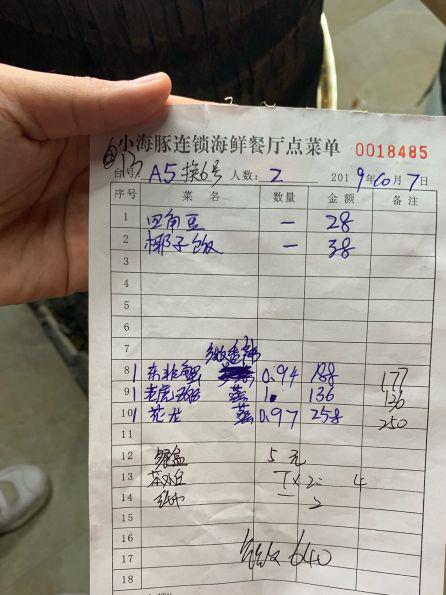 小海豚连锁海鲜餐厅点菜单 0018485
台号 A5 换6号 人数: 2 2019年10月7日
序号 菜 名 数量 金额 备注
1 四角豆 一 28
2 椰子饭 一 38
3
4
5
6
7
8 1 东非蟹 0.94 188 177
9 1 老虎斑 蒸 1. 136 136
10 1 花龙 蒸 0.97 258 250
11
12 餐盒 5元
13 茶水 1×2= 4
14 纸巾 2
15
16
17 640
18